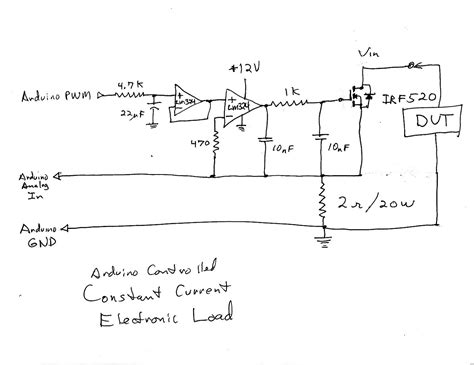 +12V
Vin
4.7K
Arduino PWM
Lm324
Lm324
1K
IRF520
22µF
DUT
470
10nF
10nF
Arduino
Analog
In
2Ω/20W
Arduino
GND
Arduino Controlled
Constant Current
Electronic Load